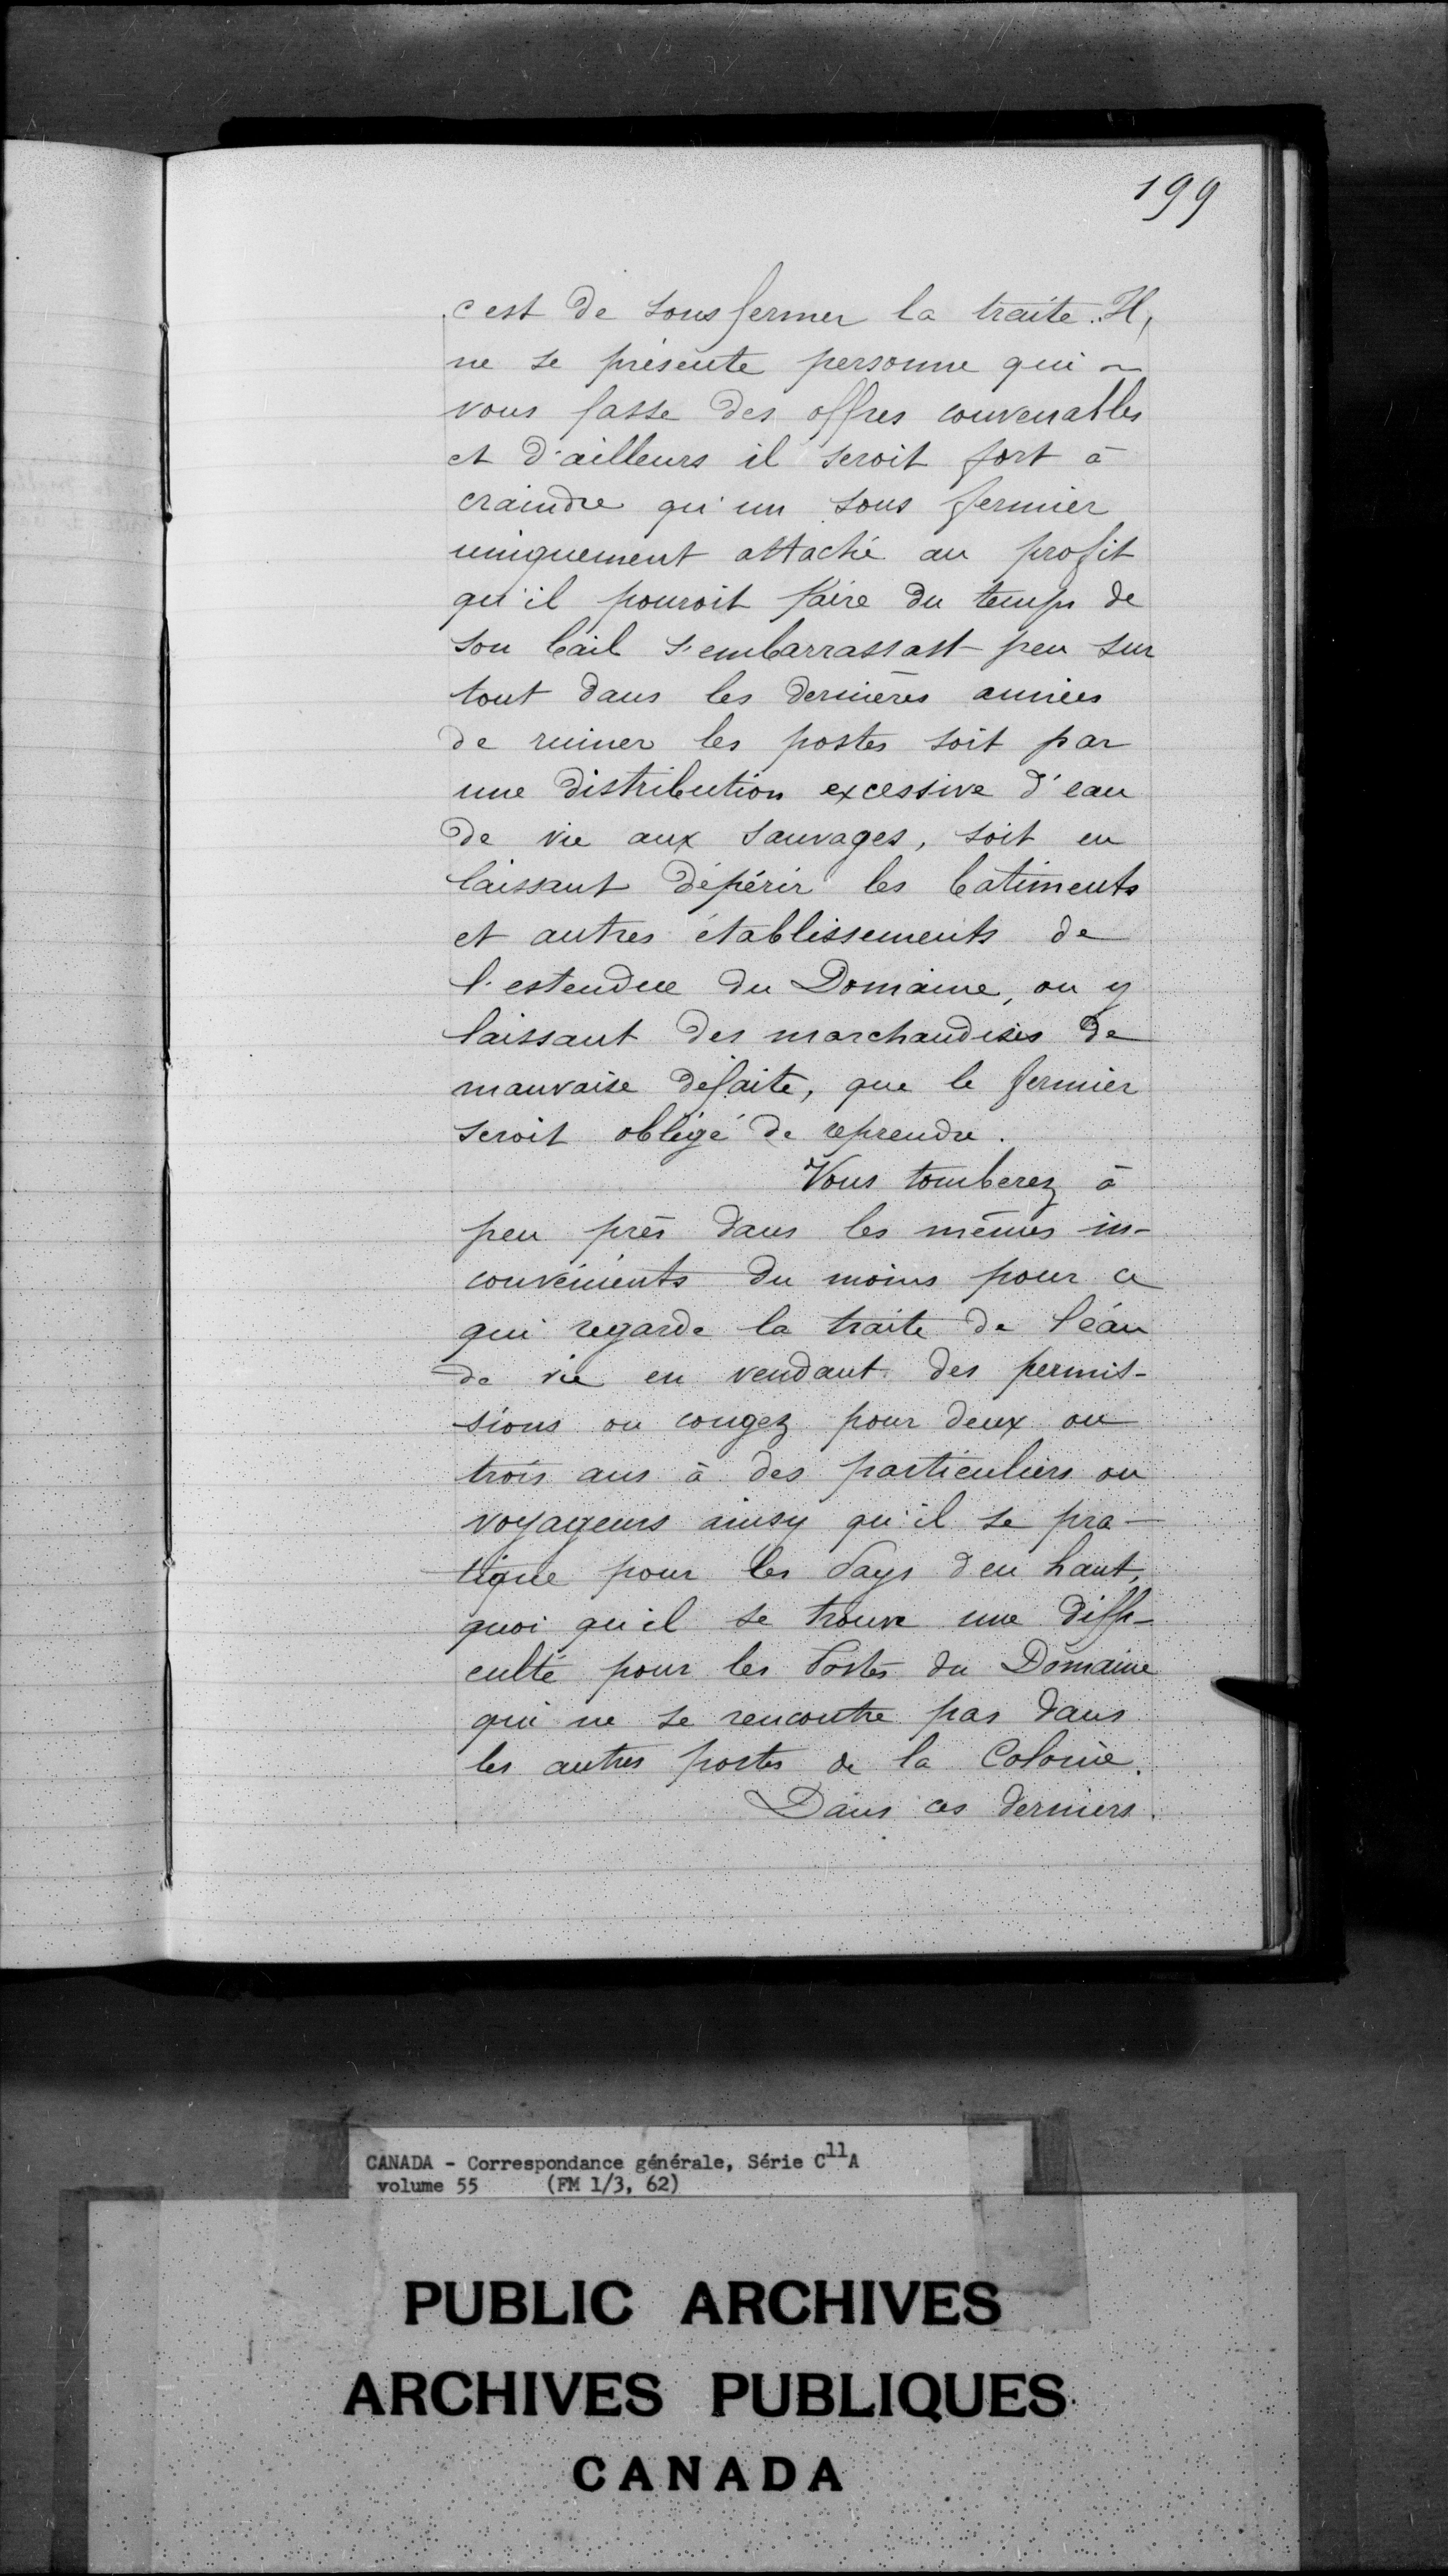 199
c'est de sous fermer la traite. Il,
ne se présente personne qui
vous fasse des offres convenables
et d'ailleurs il seroit fort à
craindre qu'un sous fermier
uniquement attaché au profit
qu'il pouroit faire du temps de
son bail s'embarrassast peu sur
tout dans les dernières années
de ruiner les postes soit par
une distribution excessive d'eau
de vie aux sauvages, soit en
laissant dépérir les batiments
et autres établissements de
l'estendue du Domaine, ou y
laissant des marchandises de
mauvaise défaite, que le fermier
seroit obligé de reprendre.
Vous tomberez à
peu près dans les mêmes in-
convénients du moins pour ce
qui regarde la traite de l'éau
de vie en vendant des permis-
sions ou congez pour deux ou
trois ans à des particuliers ou
voyageurs ainsy qu'il se pra-
tique pour les Pays d'en haut,
quoi qu'il se trouve une diffi-
culté pour les Postes du Domaine
qui ne se rencontre pas dans
les autres postes de la Colonie.
Dans ces derniers.
CANADA - Correspondance générale, Série C11A
volume 55 (FM 1/3, 62)
PUBLIC ARCHIVES
ARCHIVES PUBLIQUES
CANADA